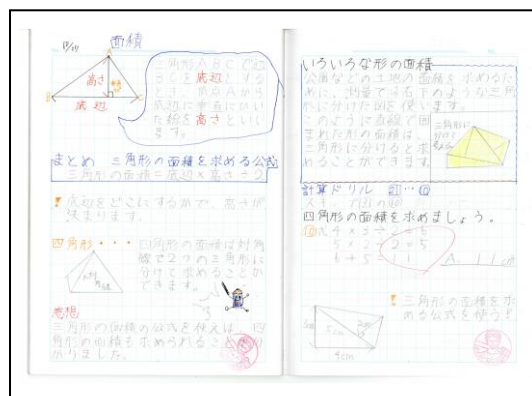 面積
三角形ABCで辺
BCを底辺とする
とき、頂点Aから
底辺に垂直にひい
た線を高さといい
ます。
高さ
底辺
まとめ 三角形の面積を求める公式
三角形の面積=底辺×高さ÷2
! 底辺をどこにするかで、高さが
決まります。
四角形・・・四角形の面積は対角
線で2つの三角形に
分けて求めることが
できます。
対角線
感想
三角形の面積の公式を使えば、四
角形の面積も求められること
かりました。
いろいろな形の面積
公園などの土地の面積を求めるた
めに、測量では右下のような三角
形に分けた図を使います。
このように直線で囲
まれた形の面積は、
三角形に分けると求
めることができます。
三角形に
分け
計算ドリル
四角形の面積を求めましょう。
式 4×3÷2=6
5×2÷2=5
6+5=11
A. 11cm
5cm
2cm
4cm
! 三角形の面積を求
める公式を使うと